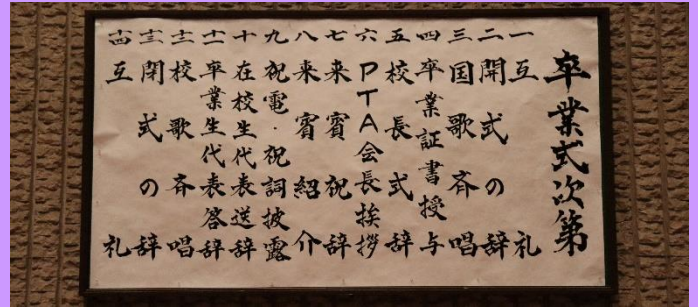 卒業式次第
一 互礼
二 開式の辞
三 国歌斉唱
四 卒業証書授与
五 校長式辞
六 PTA会長挨拶
七 来賓祝辞
八 来賓紹介
九 祝電・祝詞披露
十 在校生代表送辞
十一 卒業生代表答辞
十二 校歌斉唱
十三 閉式の辞
十四 互礼